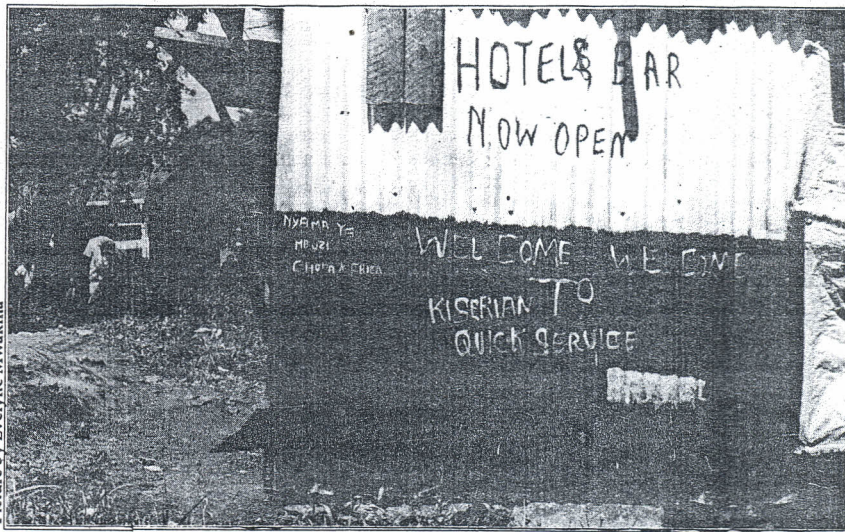 HOTEL & BAR
NOW OPEN
NYAMA YA
MBUZI
CHOMA & FRIED
WELCOME WELCOME
TO
KISERIAN
QUICK SERVICE
Evelyne Mwakina